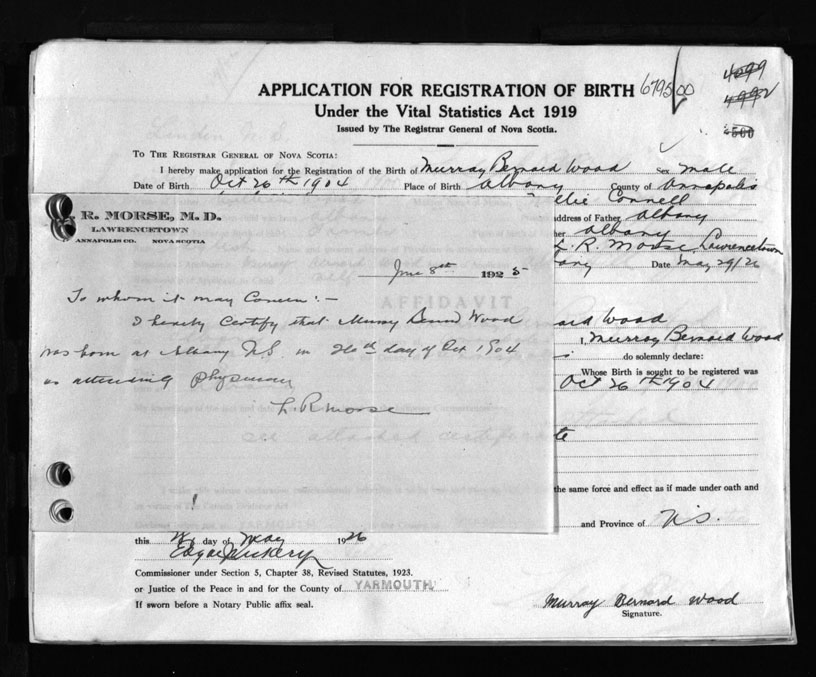 APPLICATION FOR REGISTRATION OF BIRTH 679500
4099
4992
4500
Under the Vital Statistics Act 1919
Issued by The Registrar General of Nova Scotia.
TO THE REGISTRAR GENERAL OF NOVA SCOTIA:
I hereby make application for the Registration of the Birth of Murray Bernard Wood Sex male
Date of Birth Oct 26th 1904 Place of Birth Albany County of Annapolis
llie Connell
address of Father Albany
her Albany
L. R. Morse Lawrencetown
any Date May 29/26
R. MORSE, M. D.
LAWRENCETOWN
ANNAPOLIS CO. NOVA SCOTIA
June 8th 1925
To whom it may Concern :—
I hereby Certify that Murray Wood
was born at Albany N.S. on 26th day of Oct 1904
as attending physician
L. R Morse
AFFIDAVIT
ard Wood
I, Murray Bernard Wood
do solemnly declare:
Whose Birth is sought to be registered was
Oct 26th 1904
see attached certificate
the same force and effect as if made under oath and
and Province of N.S.
this day of May 1926
Commissioner under Section 5, Chapter 38, Revised Statutes, 1923.
or Justice of the Peace in and for the County of YARMOUTH
If sworn before a Notary Public affix seal.
Murray Bernard Wood
Signature.